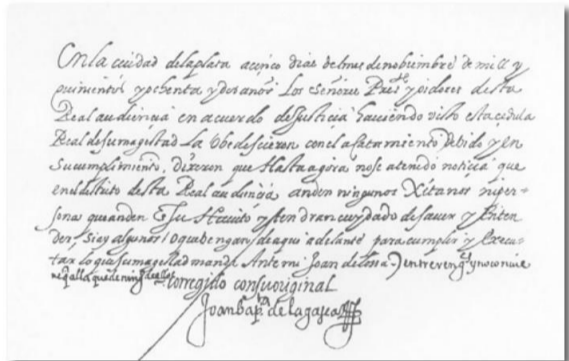 En la ciudad de la plata a cinco dias del mes de nobiembre de mill y
quinientos y ochenta y dos años Los Señores Press.te y oidores desta
Real audiencia en acuerdo de Justicia haviendo visto esta cedula
Real de su magestad la obedescieron con el acatamiento debido y en
su cumplimiento, dixeron que Hasta agora no se a tenido noticia que
en el distrito desta Real audiencia anden ningunos Xitanos ni per-
sonas que anden en Su Havito y tendran cuydado de saver y Enten
der, si ay algunos / o que Vengan de aqui adelante para cumplir y Execu
tar lo que su magestad manda Ante mi Joan de Losa
corregido con su original
Joan Bap.ta de la gasca